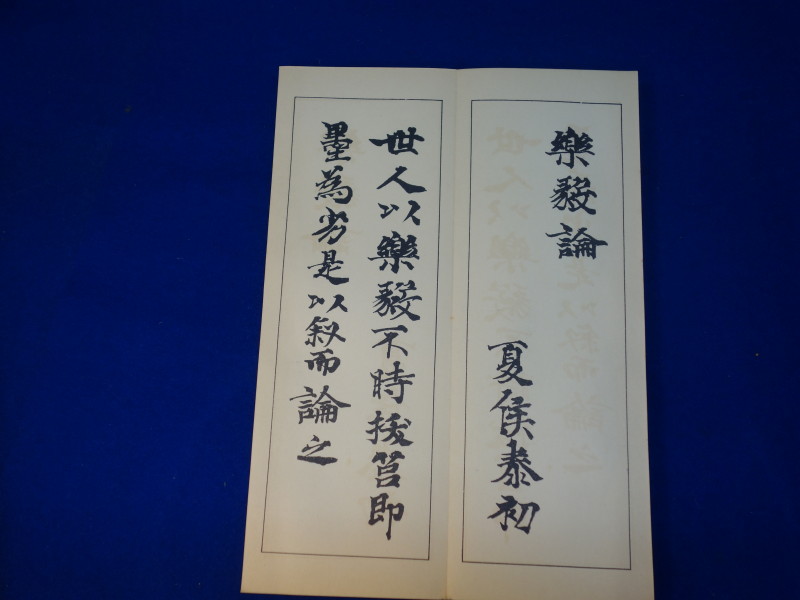 樂毅論
夏侯泰初
世人以樂毅不時拔莒即
墨為劣是以叙而論之